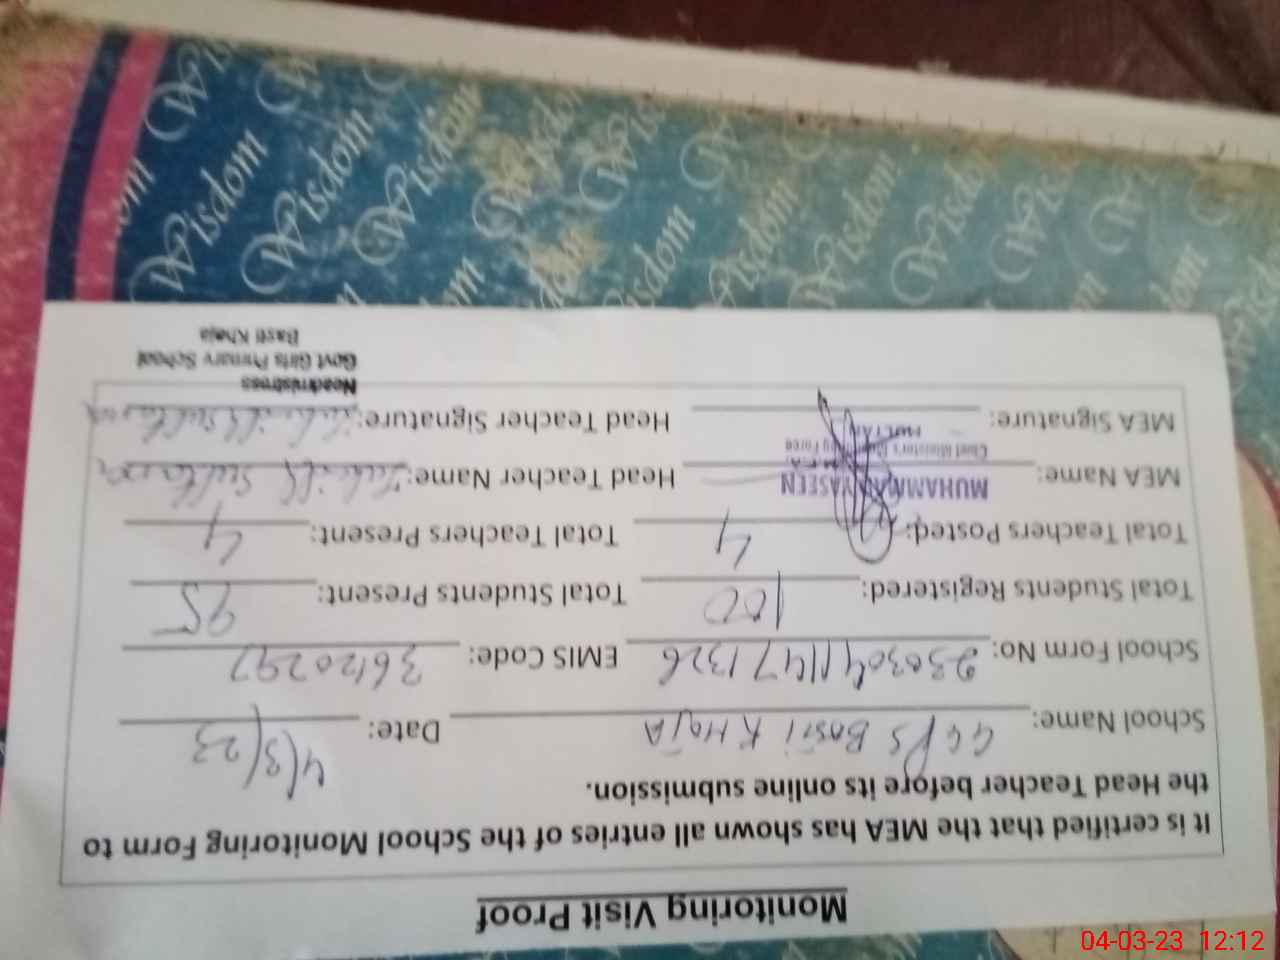 Monitoring Visit Proof
It is certified that the MEA has shown all entries of the School Monitoring Form to
the Head Teacher before its online submission.
School Name: GGPS Basti KHOJA Date: 4/3/23
School Form No: 230304111471326 EMIS Code: 36120297
Total Students Registered: 100 Total Students Present: 95
Total Teachers Posted: 4 Total Teachers Present: 4
MEA Name: MUHAMMAD YASEEN Head Teacher Name: Sultana
Chief Minister's Monitoring Force
MULTAN
MEA Signature: Head Teacher Signature: Sultana
Headmistress
Govt Girls Primary School
Basti Khoja
Wisdom Wisdom Wisdom Wisdom
04-03-23 12:12